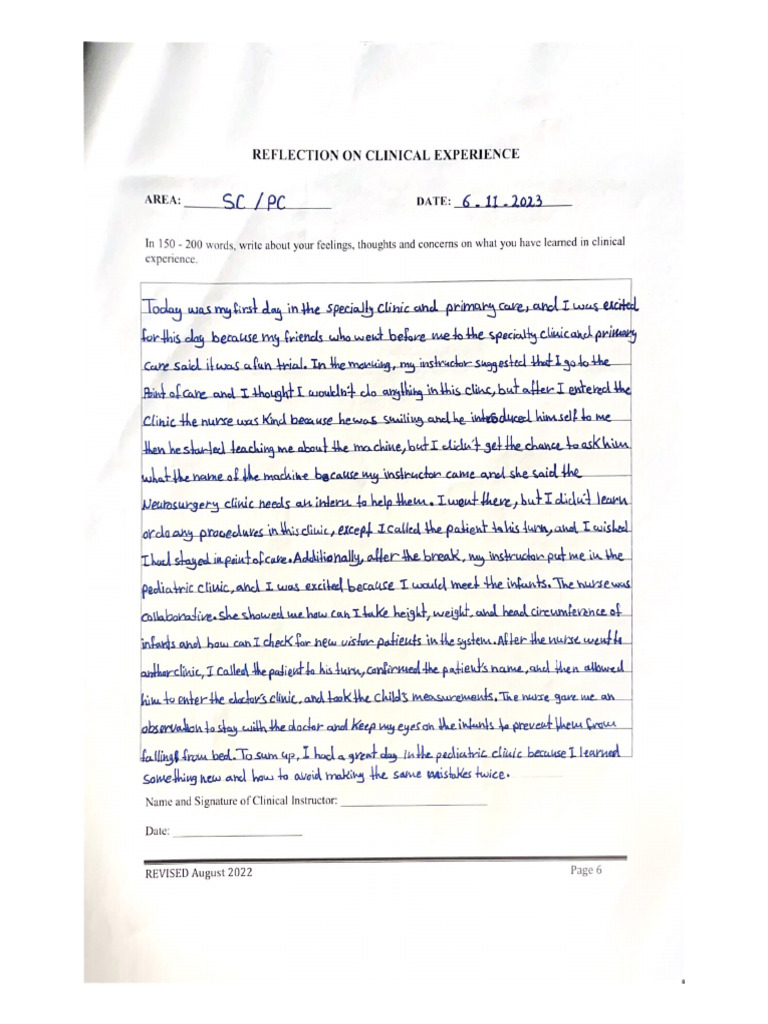 REFLECTION ON CLINICAL EXPERIENCE
AREA: SC / PC DATE: 6.11.2023
In 150 - 200 words, write about your feelings, thoughts and concerns on what you have learned in clinical
experience.
Today was my first day in the specially clinic and primary care, and I was excited
for this day because my friends who went before me to the specialty clinic and primary
care said it was a fun trial. In the morning, my instructor suggested that I go to the
Point of care and I thought I wouldn't do anything in this clinc, but after I entered the
Clinic the nurse was Kind because he was smiling and he introduced himself to me
then he started teaching me about the machine, but I didn't get the chance to ask him
what the name of the machine because my instructor came and she said the
Neurosurgery clinic needs an intern to help them. I went there, but I didn't learn
or do any procedures in this clinic, except I called the patient to his turn, and I wished
I had stayed in point of care. Additionally, after the break, my instructor put me in the
pediatric clinic, and I was excited because I would meet the infants. The nurse was
collaborative. She showed me how can I take height, weight, and head circumference of
infants and how can I check for new vistor patients in the system. After the nurse went to
another clinic, I called the patient to his turn, confirmed the patient's name, and then allowed
him to enter the doctor's clinic, and took the child's measurements. The nurse gave me an
observation to stay with the doctor and Keep my eyes on the infants to prevent them from
falling from bed. To sum up, I had a great day in the pediatric clinic because I learned
something new and how to avoid making the same mistakes twice.
Name and Signature of Clinical Instructor:
Date:
REVISED August 2022 Page 6